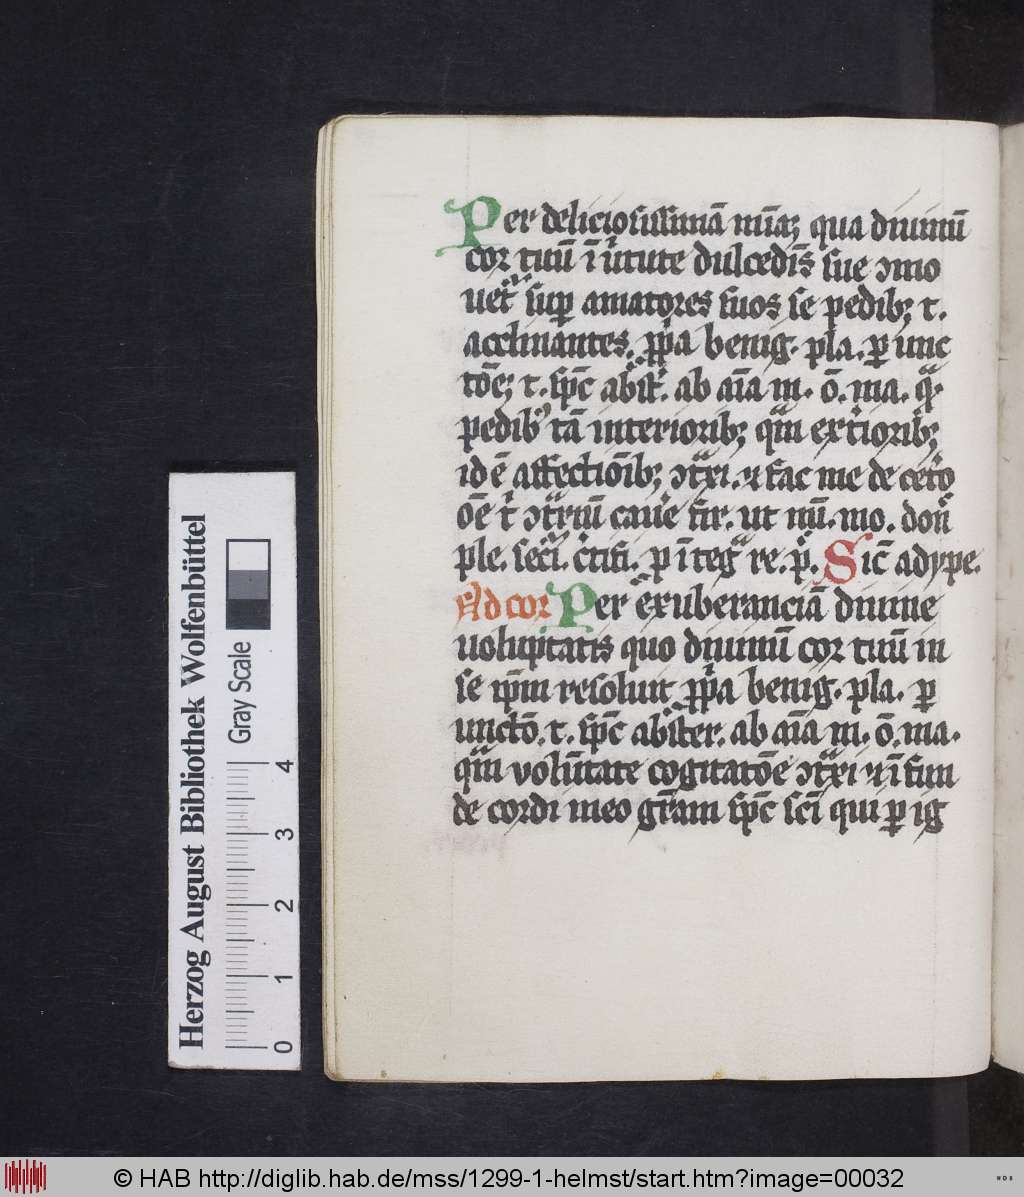 Per deliciosissimā mīaʒ qua diuinū
cor tuū ī ụtute dulcedīs sue ɔmo
uet᷑ sup amatores suos se pedibʒ t.
acclinantes. ppa benig. pla. p unc
tōeʒ t. sp̄c abst. ab aīa m. ō. ma. q.
pedibꝰ tā interioribʒ qm exterioribʒ
id ē affectiōibʒ ɔtxi. ⁊ fac me de ceto
ōē t ɔtriū caue fir. ut nū. mo. don
ple. seci. ctifi. p īteg re. p. Sic̄ adype.
Ad cor Per exuberanciā diuine
uoluptatis quo diuinū cor tuū in
se ip̄m resoluit ppa benig. pla. p
unctō. t. sp̄c abster. ab aīa m. ō. ma.
qm volūtate cogitatōe ɔtxi ⁊ ī fun
de cordi meo gr̄am sp̄c sc̄i qui p ig
Herzog August Bibliothek Wolfenbüttel
Gray Scale
0 1 2 3 4
© HAB http://diglib.hab.de/mss/1299-1-helmst/start.htm?image=00032